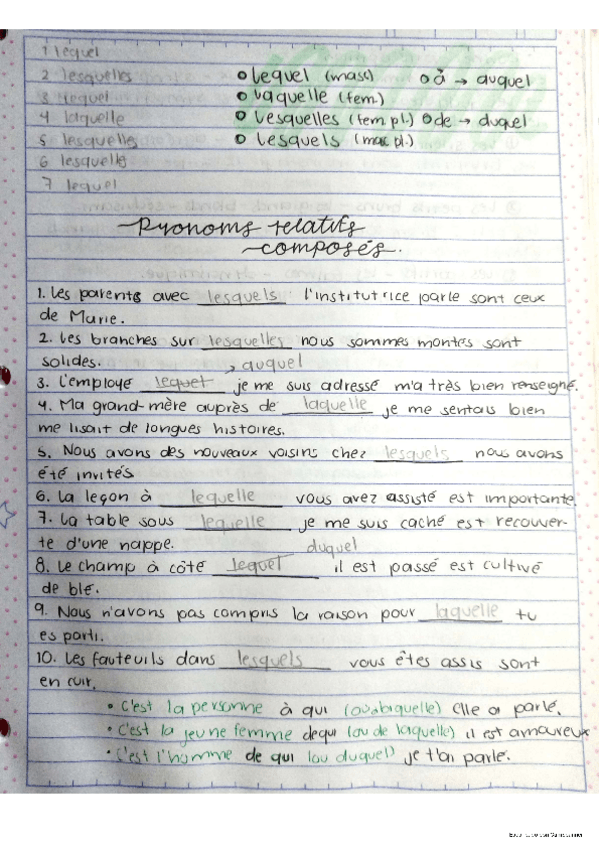 1 lequel
2 lesquelles
3 lequel
4 laquelle
5 lesquelles
6 lesquelles
7 lequel
○ Lequel (masc) ○ à → auquel
○ Laquelle (fem.)
○ Lesquelles (fem pl.) ○ de → duquel
○ Lesquels (mac pl.)
Pronoms relatifs
composés.
1. Les parents avec lesquels l'institutrice parle sont ceux
de Marie.
2. Les branches sur lesquelles nous sommes montés sont
solides.
→ auquel
3. L'employé lequel je me suis adressé m'a très bien renseigné.
4. Ma grand-mère auprès de laquelle je me sentais bien
me lisait de longues histoires.
5. Nous avons des nouveaux voisins chez lesquels nous avons
été invités
6. La leçon à lequelle vous avez assisté est importante.
7. La table sous lequelle je me suis caché est recouver-
te d'une nappe.
duquel
8. Le champ à côté lequel il est passé est cultivé
de blé.
9. Nous n'avons pas compris la raison pour laquelle tu
es parti.
10. Les fauteuils dans lesquels vous êtes assis sont
en cuir.
• C'est la personne à qui (ou à laquelle) Elle a parlé.
• C'est la jeune femme de qui (ou de laquelle) il est amoureux
• C'est l'homme de qui (ou duquel) je t'ai parlé.